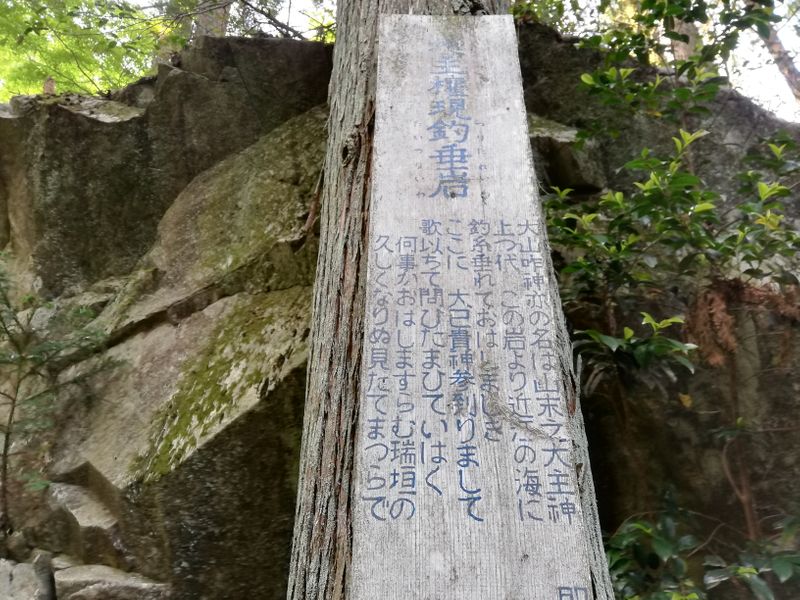 主権現釣垂岩
大山咋神亦の名は山末之大主神
上つ代 この岩より近江の海に
釣糸垂れておはしましき
ここに 大己貴神参到りまして
歌以ちて問ひたまひていはく
何事かおはしますらむ瑞垣の
久しくなりぬ見たてまつらで